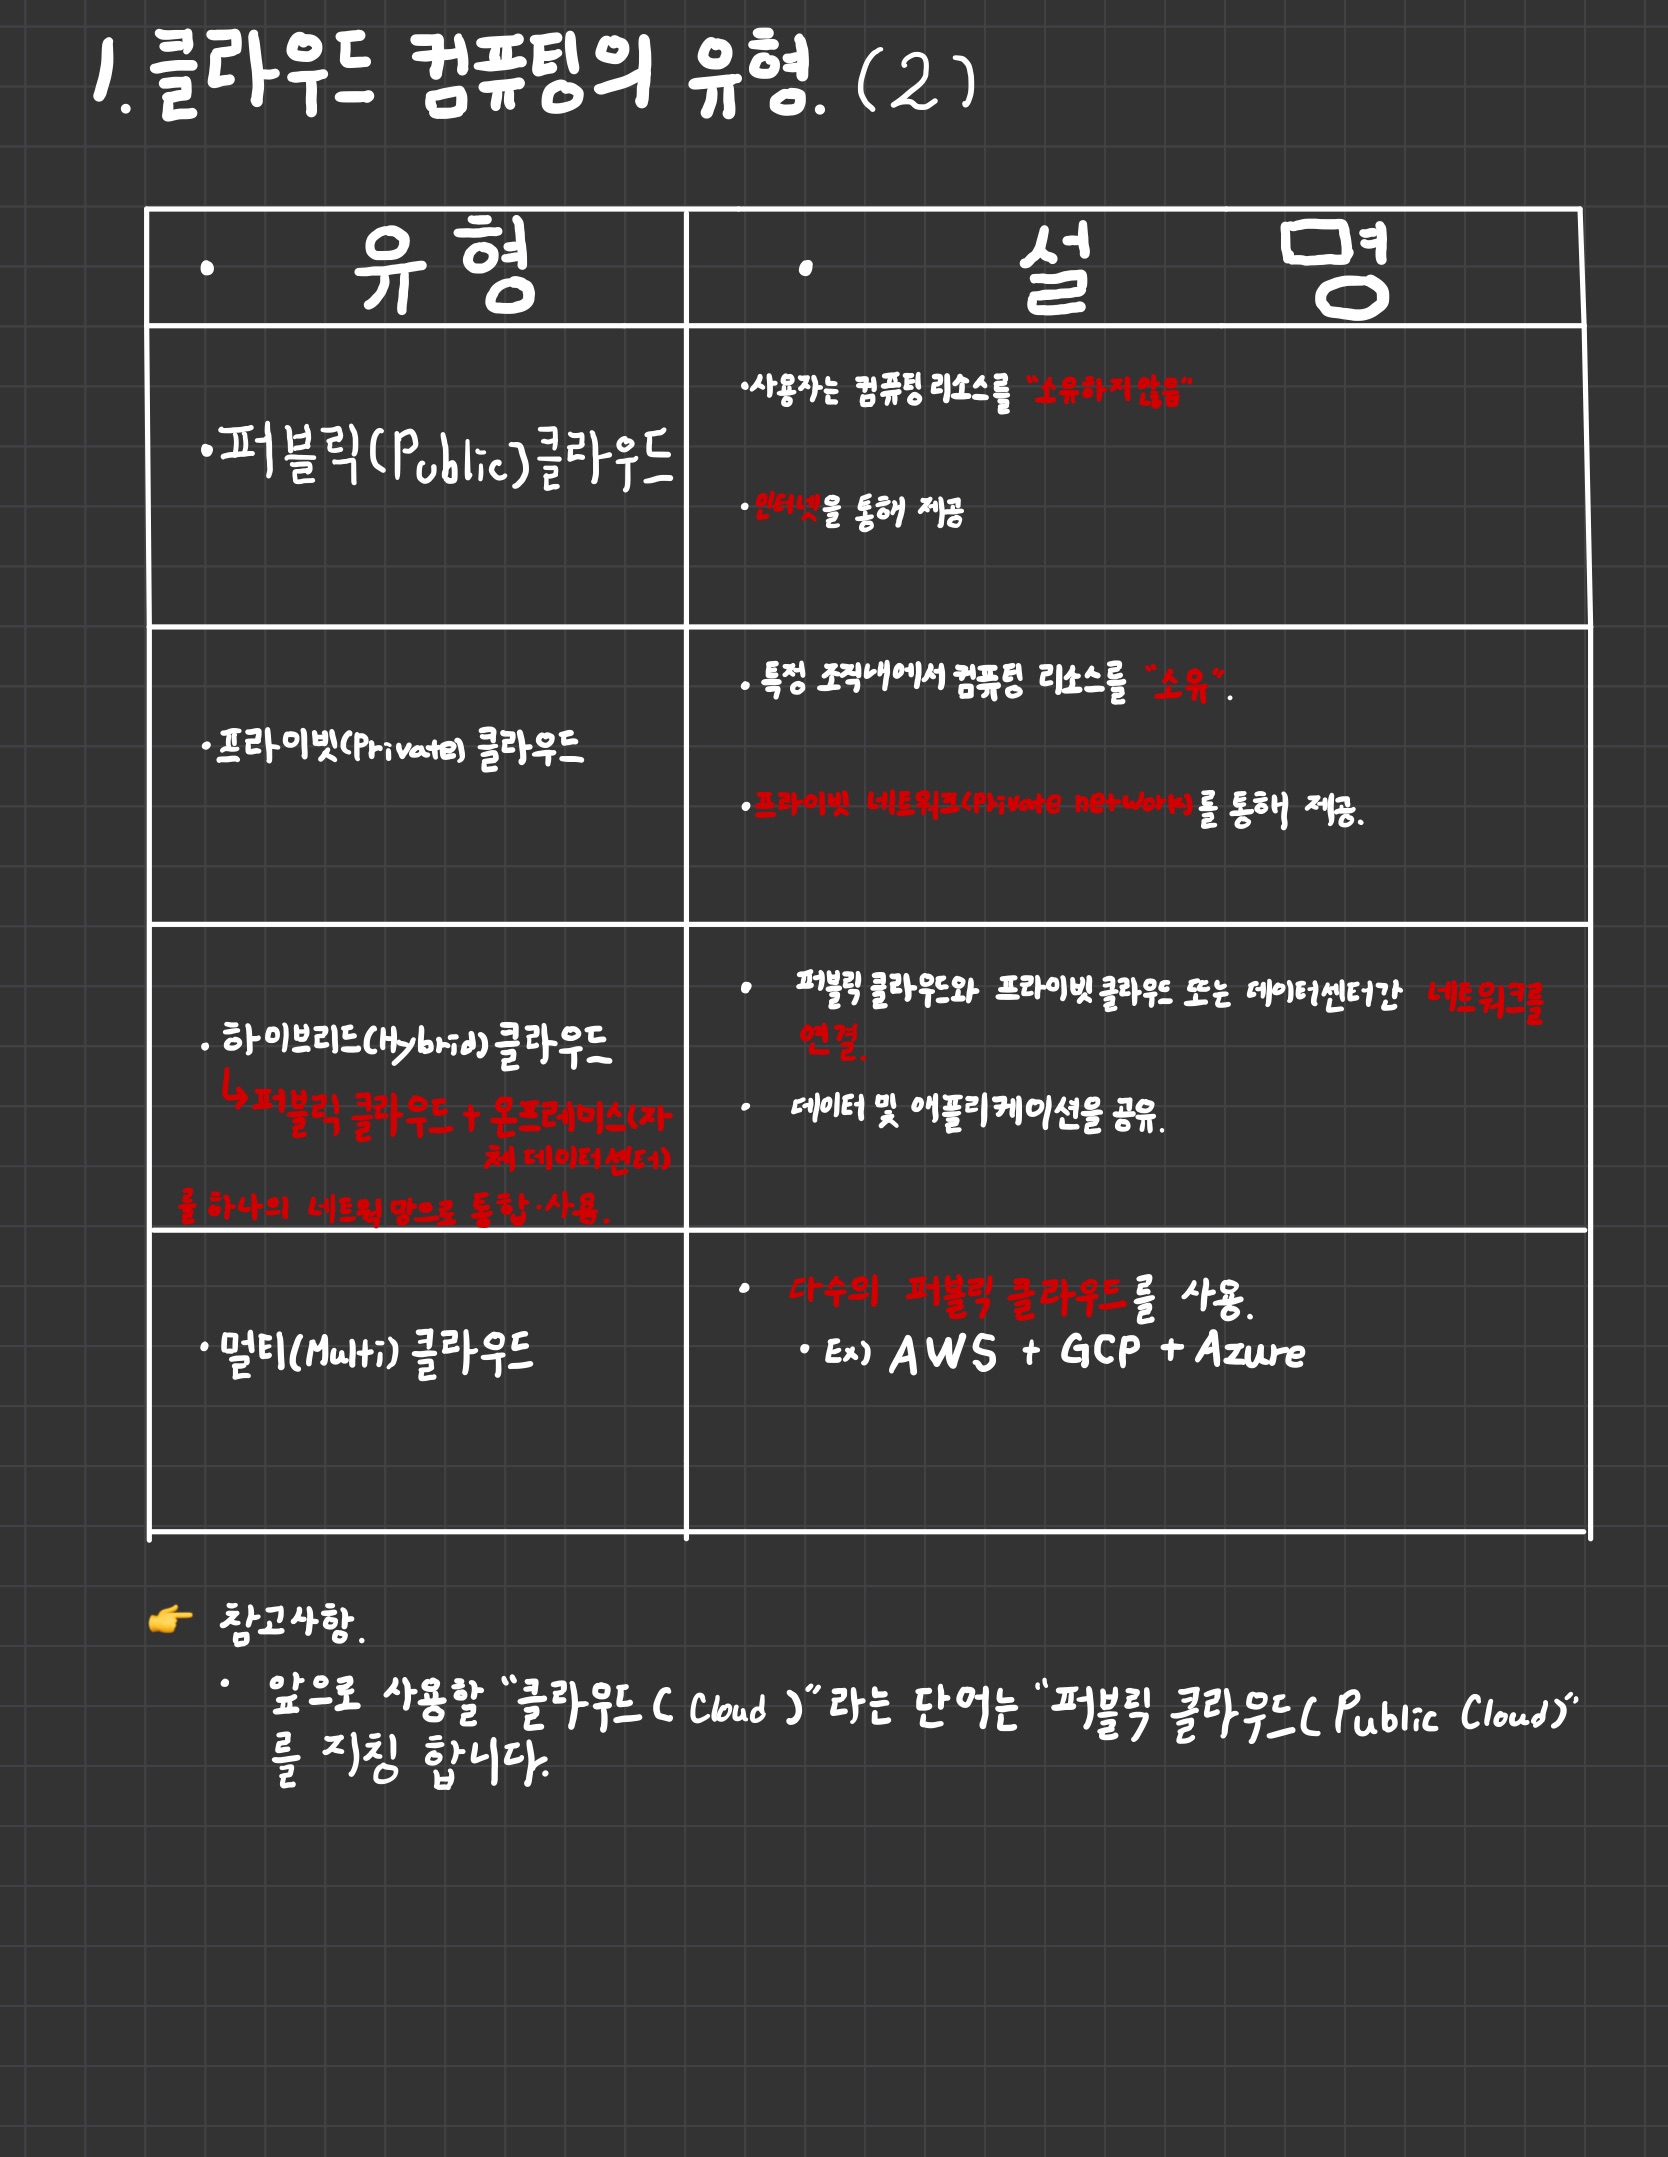 1. 클라우드 컴퓨팅의 유형. (2)
· 유형
· 설명
· 퍼블릭(Public)클라우드
· 사용자는 컴퓨팅 리소스를 "소유하지 않음"
· 인터넷을 통해 제공
· 프라이빗(Private) 클라우드
· 특정 조직내에서 컴퓨팅 리소스를 "소유".
· 프라이빗 네트워크(Private network)를 통해 제공.
· 하이브리드(Hybrid) 클라우드
↳ 퍼블릭 클라우드 + 온프레미스(자
체 데이터센터)
를 하나의 네트웍 망으로 통합·사용.
· 퍼블릭 클라우드와 프라이빗 클라우드 또는 데이터센터간 네트워크를
연결.
· 데이터 및 애플리케이션을 공유.
· 멀티(Multi) 클라우드
· 다수의 퍼블릭 클라우드를 사용.
· Ex) AWS + GCP + Azure
👉 참고사항.
· 앞으로 사용할 "클라우드(Cloud)"라는 단어는 "퍼블릭 클라우드(Public Cloud)"
를 지칭 합니다.